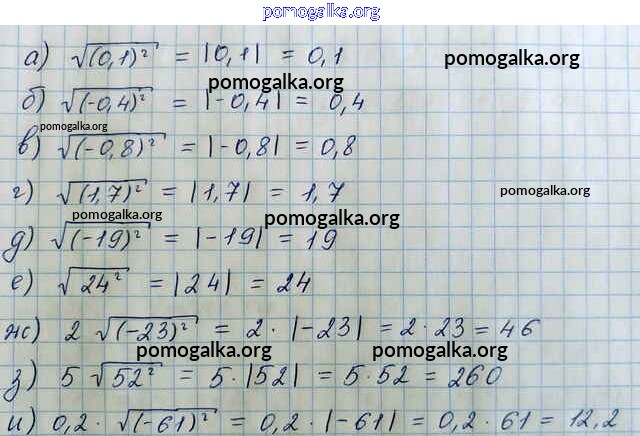 pomogalka.org
а) √(0,1)² = |0,1| = 0,1
pomogalka.org
pomogalka.org
б) √(-0,4)² = |-0,4| = 0,4
pomogalka.org
в) √(-0,8)² = |-0,8| = 0,8
г) √(1,7)² = |1,7| = 1,7
pomogalka.org
pomogalka.org
pomogalka.org
д) √(-19)² = |-19| = 19
е) √24² = |24| = 24
ж) 2 √(-23)² = 2 · |-23| = 2 · 23 = 46
pomogalka.org
pomogalka.org
з) 5 √52² = 5 · |52| = 5 · 52 = 260
и) 0,2 · √(-61)² = 0,2 · |-61| = 0,2 · 61 = 12,2